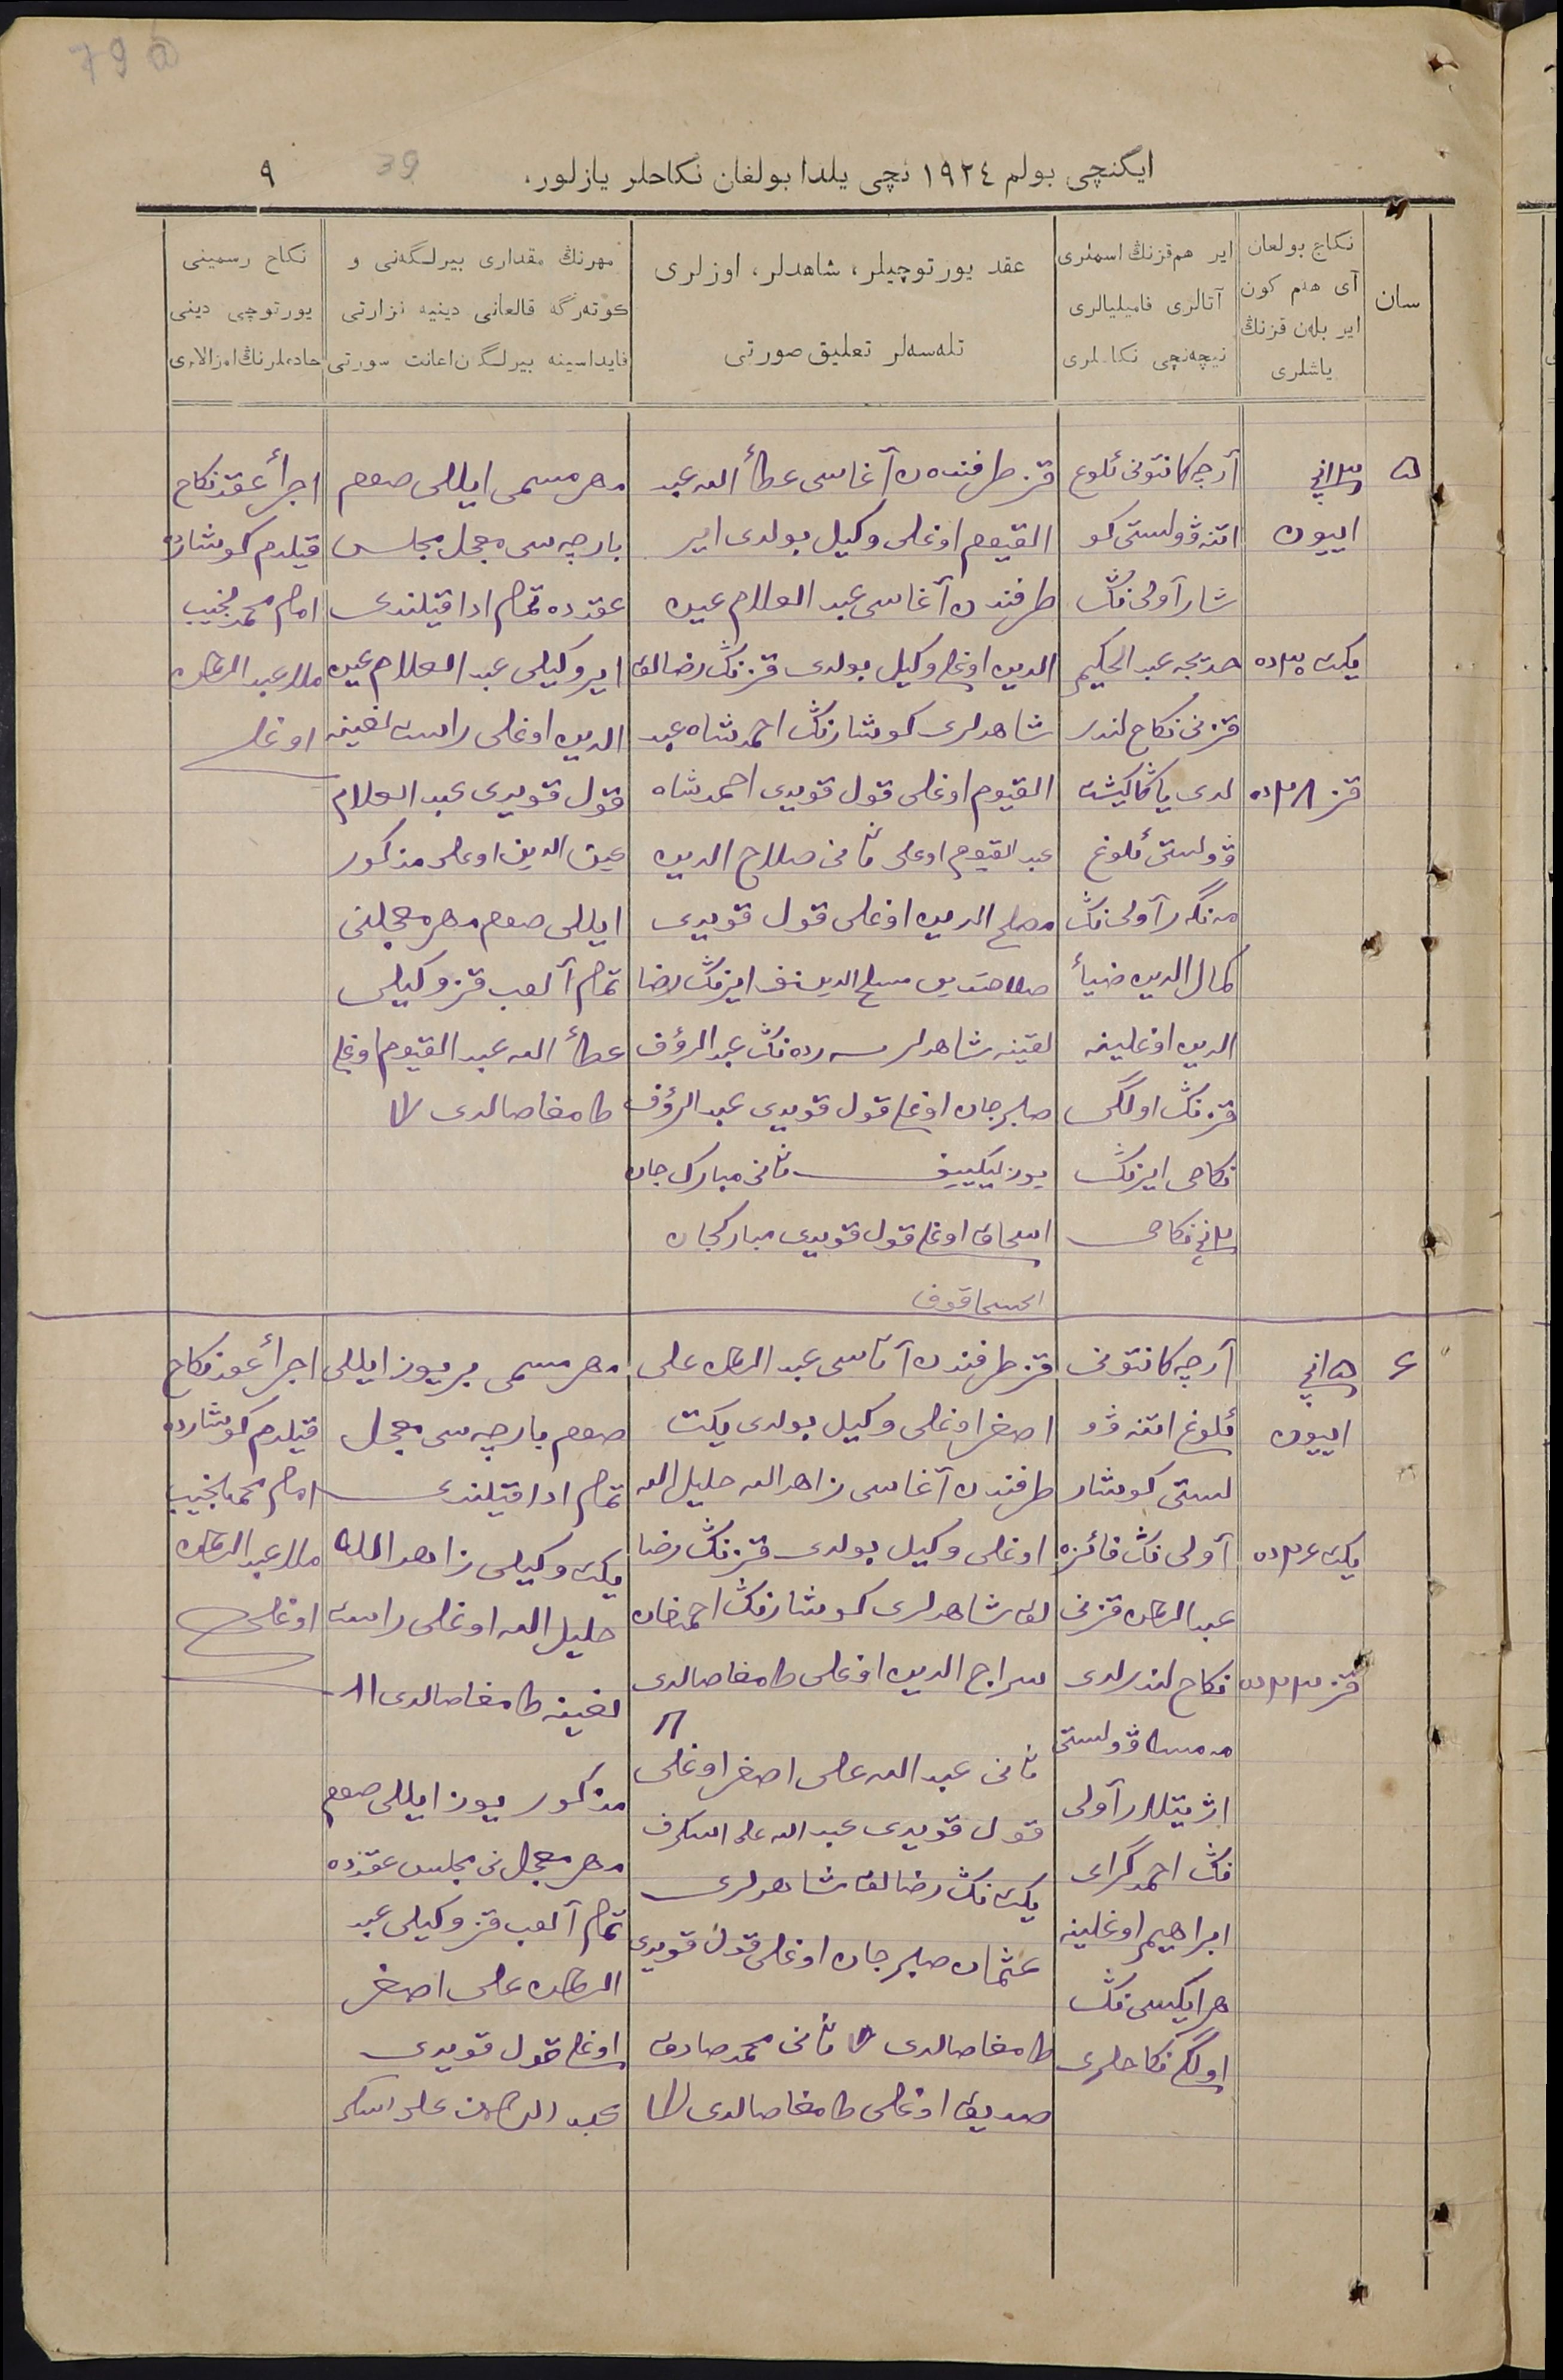 79 ⓐ
ایگنچی بولم ١٩٢٤ نچی یلدا بولغان نکاحلر یازلور.
39
٩
سان
نکاح بولغان
آی هم کون
ایر بلەن قزنڭ
یاشلری
ایر هم قزنڭ اسملری
آتالری فامیلیالری
نیچەنچی نکاحلری
عقد یورتوچیلر، شاهدلر، اوزلری
تلەسەلر تعلیق صورتی
مهرنڭ مقداری بیرلگەنی و
کوتەرگە قالغانی دینیه نزارتی
فایداسینه بیرلگن اعانت سورتی
نکاح رسمینی
یورتوچی دینی
خادملرنڭ امزالاری
٥
اییون
یکت ٣٥ ده
قز ٢٨ ده
آرچه کانتونی ئلوغ
اتنه ڤولستی کو
شار آولی نڭ
خدیجه عبد الحکیم
قزنی نکاحلندر
لدی یاڭاکیشت
ڤولستی ئلوغ
مەنگەر آولی نڭ
کمال الدین ضیأ
الدین اوغلینه
قزنڭ اولگی
نکاحی ایرنڭ
نکاحی
قز طرفندەن آغاسی عطأ الله عبد
القیوم اوغلی وکیل بولدی ایر
طرفندن آغاسی عبد العلام عین
الدین اوغلی وکیل بولدی قزنڭ رضالق
شاهدلری کوشارنڭ احمدشاه عبد
القیوم اوغلی قول قویدی احمدشاه
عبد القیوم اوغلی ثانی صلاح الدین
مصلح الدین اوغلی قول قویدی
ایرنڭ رضا
لقینه شاهدلر سەردەنڭ عبد الرؤف
صابرجان اوغلی قول قویدی عبد الرؤف
ثانی مبارک جان
اسحاق اوغلی قول قویدی مبارکجان
اسحاقوف
مهر مسمی ایللی صوم
بارچەسی معجل مجلس
عقدده تمام ادا قیلندی
ایر وکیلی عبد العلام عین
الدین اوغلی راست لغینه
قول قویدی عبد العلام
عین الدین اوغلی مذکور
ایللی صوم مهر معجلنی
تمام آلوب قز وکیلی
عطأ الله عبد القیوم اوغلی
طامغا صالدی
اجرأ عقد نکاح
قیلدم کوشارده
امام محمد نجیب
ملا عبد الرحمن
اوغلی
٦
اییون
یکت ٢٦ ده
قز ٢٣ ده
آرچه کانتونی
ئلوغ اتنه ڤو
لستی کوشار
آولی نڭ فائزه
عبد الرحمن قزنی
نکاحلندرلدی
ڤولستی
آولی
نڭ احمد گرای
ابراهیم اوغلینه
هر ایکسی نڭ
اولگی نکاحلری
قز طرفندن آتاسی عبد الرحمن علی
اصغر اوغلی وکیل بولدی یکت
طرفندن آغاسی زاهد الله خلیل الله
اوغلی وکیل بولدی قزنڭ رضا
لق شاهدلری کوشارنڭ احمدخان
سراج الدین اوغلی طامغا صالدی
ثانی عبد الله علی اصغر اوغلی
قول قویدی عبد الله علی اسکرف
یکت نڭ رضالق شاهدلری
عثمان صابرجان اوغلی قول قویدی
طامغا صالدی ثانی محمد صادق
صدیق اوغلی طامغا صالدی
مهر مسمی بر یوز ایللی
صوم بارچەسی معجل
تمام ادا قیلندی
یکت وکیلی زاهد الله
خلیل الله اوغلی راست
لغینه طامغا صالدی
مذکور یوز ایللی صوم
مهر معجل نی مجلس عقدده
تمام آلوب قز وکیلی عبد
الرحمن علی اصغر
اوغلی قول قویدی
عبد الرحمن علی اسکر
اجرأ عقد نکاح
قیلدم کوشارده
امام محمد نجیب
ملا عبد الرحمن
اوغلی